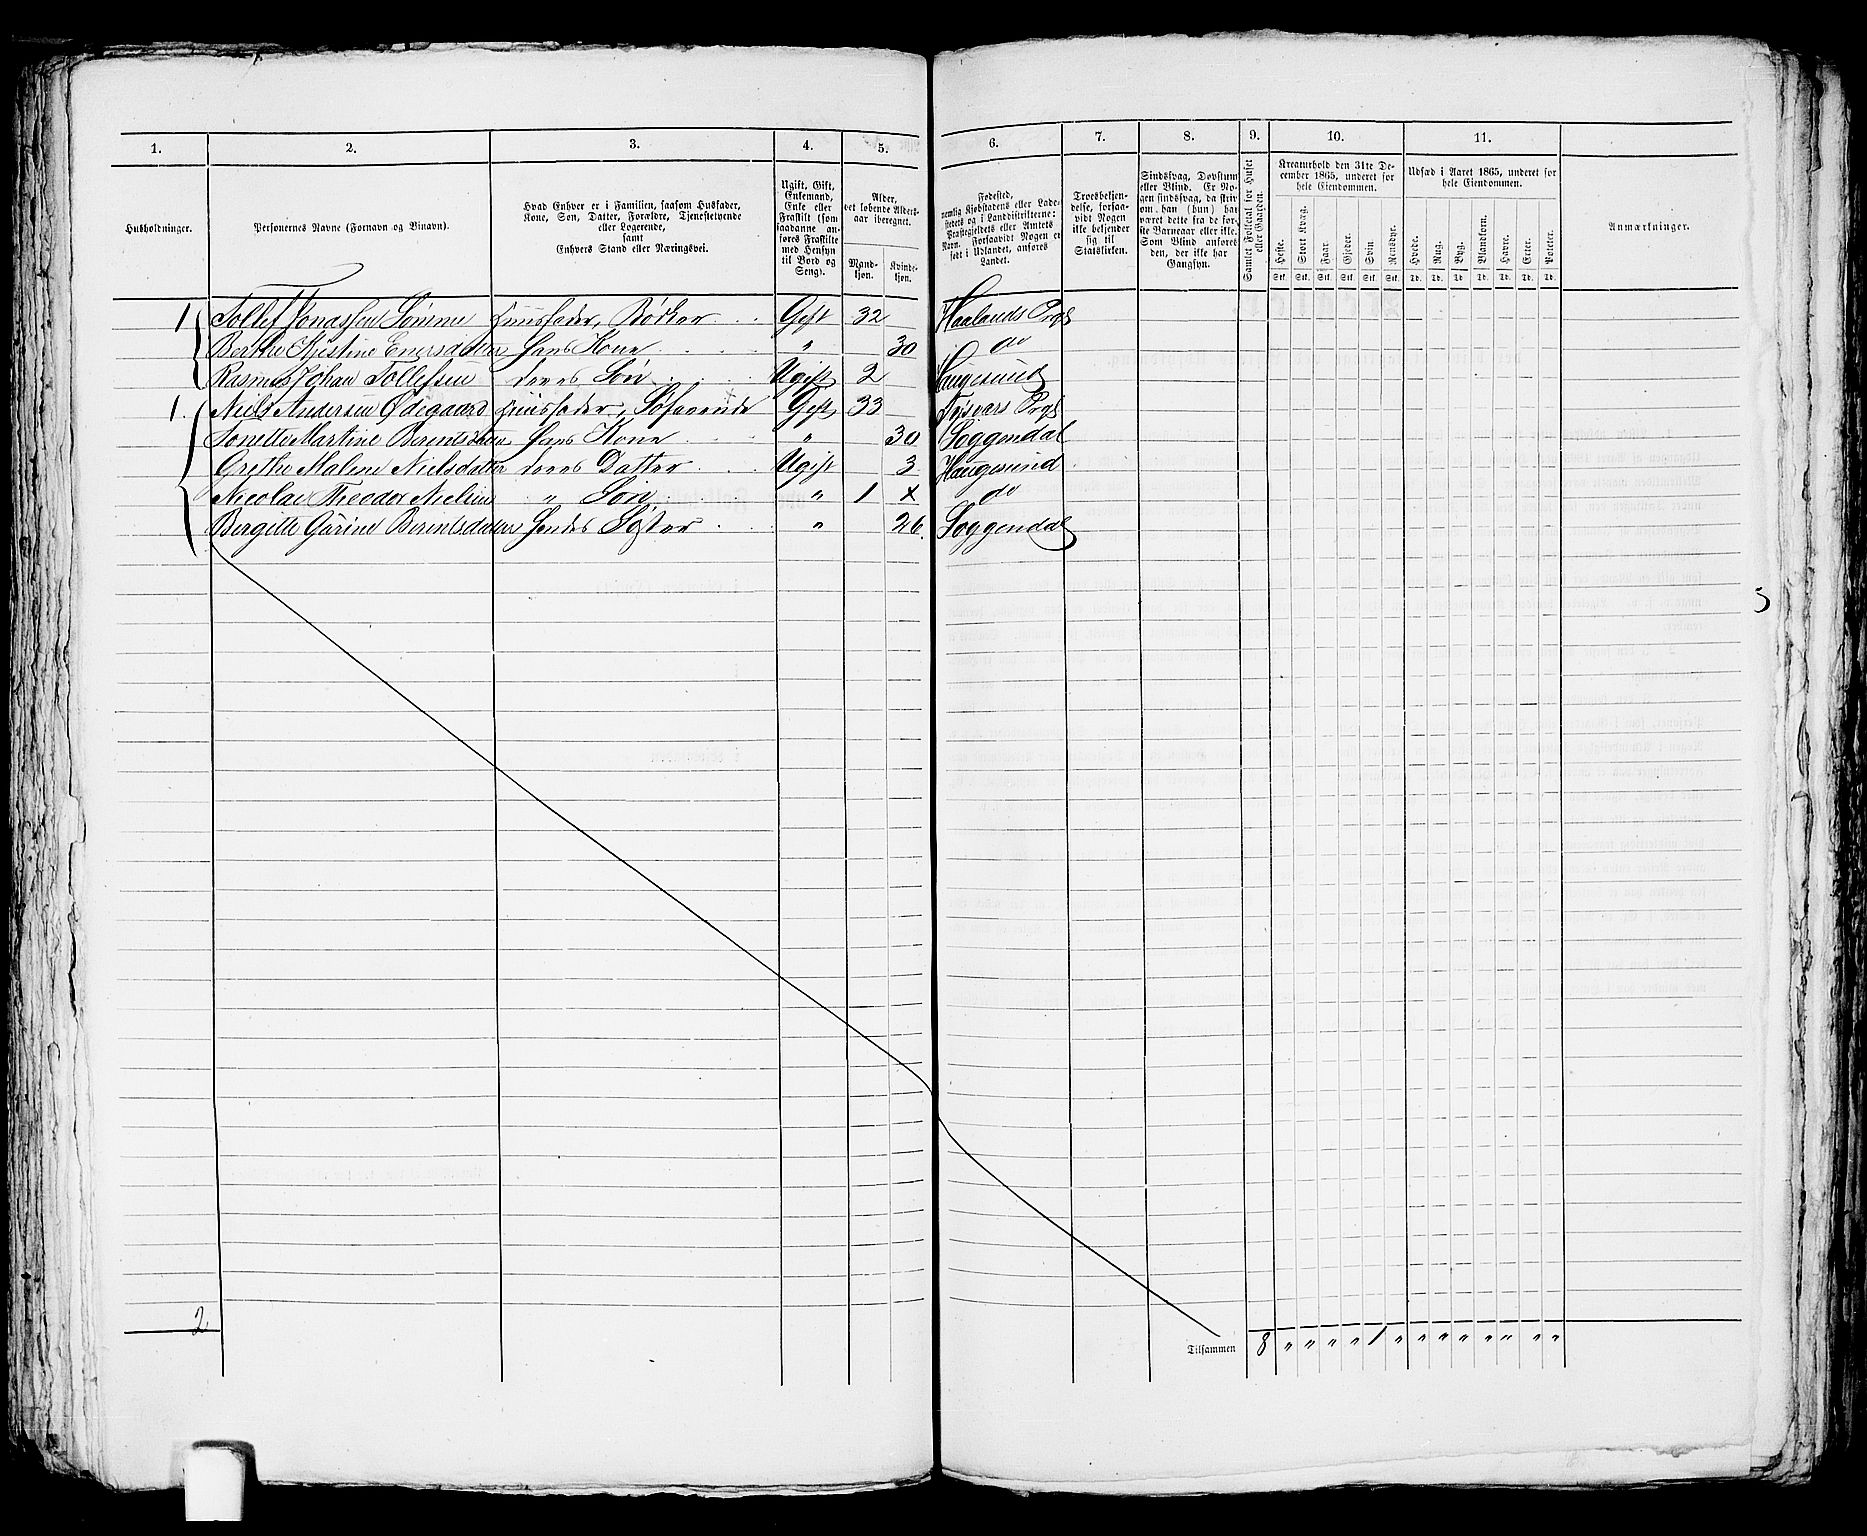 1. 2. 3. 4. 5. 6. 7. 8. 9. 10. 11.
Husholdninger.
Personernes Navne (Fornavn og Tilnavn).
Hvad Enhver er i Familien, saasom Husfader,
Kone, Søn, Datter, Forældre, Tjenestetyende
eller Logerende,
samt
Enhvers Stand eller Næringsvei.
Ugift, Gift,
Enkemand,
Enke eller
Fraskilt (som
saadanne an-
føres Fraskilte
med Hensyn
til Bord og
Seng).
Alder,
det løbende Alders-
aar iberegnet.
Mand-
kjøn.
Kvinde-
kjøn.
Fødested,
nemlig Kjøbstadens eller Lade-
stedets og i Landdistrikterne:
Præstegjeldets eller Amtets
Navn. Forsaavidt Nogen er
født i Udlandet, anføres
Landet.
Troesbekjen-
delse, forsaa-
vidt Nogen
ikke bekjender
sig til
Statskirken.
Sindssvag, Døvstum
eller Blind. Er No-
gen sindssvag, da skriv
om han (hun) har
været dette fra de før-
ste Barneaar eller ikke.
Som Blind anføres
den, der ikke har
Gangsyn.
Samlet Folketal for Huset
eller Gaarden.
Kreaturhold den 31te De-
cember 1865, underet for
hele Eiendommen.
Heste. Stort Kvæg. Faar. Gjeder. Svin. Rensdyr.
Stk. Stk. Stk. Stk. Stk. Stk.
Udsæd i Aaret 1865, underet for
hele Eiendommen.
Hvede. Rug. Byg. Blandkorn. Havre. Erter. Poteter.
Td. Td. Td. Td. Td. Td. Td.
Anmærkninger.
1 Tollef Jonassen Sømme Huusfader, Bødker Gift 32 Haalands Prgj
Berthe Kjistine Enersdatter Hans Kone " 30 do
Rasmus Johan Tollefsen deres Søn Ugift 2 Haugesund
1. Niels Andersen Ødegaard Huusfader, Søfarende Gift 33 Tysvær Prgj
Tonette Martine Berentsdatter Hans Kone " 30 Soggendal
Grethe Malene Nielsdatter deres Datter Ugift 3 Haugesund
Nicolai Theodor Nielsen " Søn " 1 x do
Bergitte Gurine Berentsdatter Hendes Søster " 26 Soggendal
3
2
Tilsammen 8 " " " " 1 " " " " " " " "